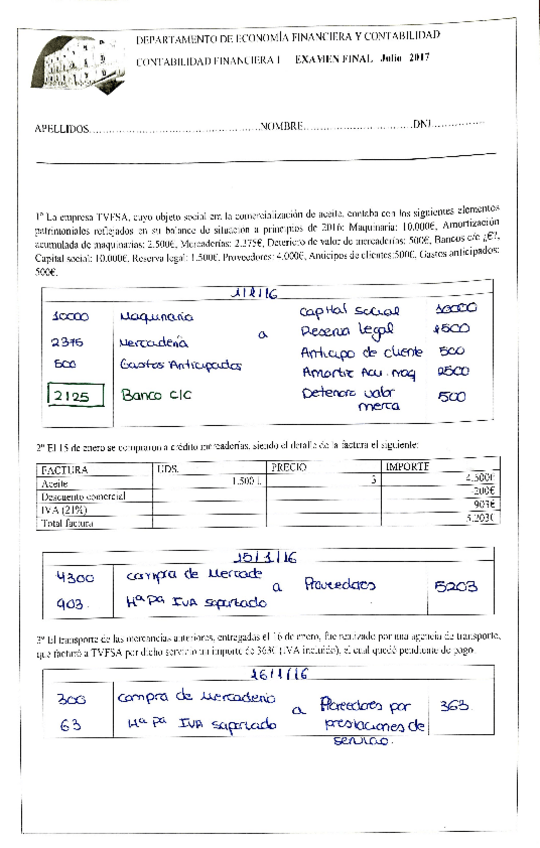 DEPARTAMENTO DE ECONOMÍA FINANCIERA Y CONTABILIDAD
CONTABILIDAD FINANCIERA I EXAMEN FINAL Julio 2017
APELLIDOS NOMBRE DNI
1º La empresa TVFSA, cuyo objeto social era la comercialización de aceite, contaba con los siguientes elementos
patrimoniales reflejados en su balance de situación a principios de 2016: Maquinaria: 10.000€, Amortización
acumulada de maquinarias: 2.500€, Mercaderías: 2.375€, Deterioro de valor de mercaderías: 500€, Bancos c/c ¿€?,
Capital social: 10.000€, Reserva legal: 1.500€, Proveedores: 4.000€, Anticipos de clientes:500€, Gastos anticipados:
500€.
1/1/16
10000 Maquinaria a Capital social 10000
2375 Mercaderia Reserva legal 1500
500 Gastos Anticipados Anticipo de cliente 500
Amortiz Acu. maq 2500
2125 Banco C/C Deterioro valor 500
merca
2º El 15 de enero se compraron a crédito mercaderías, siendo el detalle de la factura el siguiente:
FACTURA UDS. PRECIO IMPORTE
Aceite 1.500 l. 3 4.500€
Descuento comercial 200€
IVA (21%) 903€
Total factura 5.203€
15/1/16
4300 compra de Mercade a Proveedores 5203
903. Hª Pª IVA soportado
3º El transporte de las mercancías anteriores, entregadas el 16 de enero, fue realizado por una agencia de transporte,
que facturó a TVFSA por dicho servicio un importe de 363€ (IVA incluido), el cual quedó pendiente de pago.
16/1/16
300 compra de Mercaderia a Proveedores por 363.
63 Hª Pª IVA soportado prestaciones de
servicio.